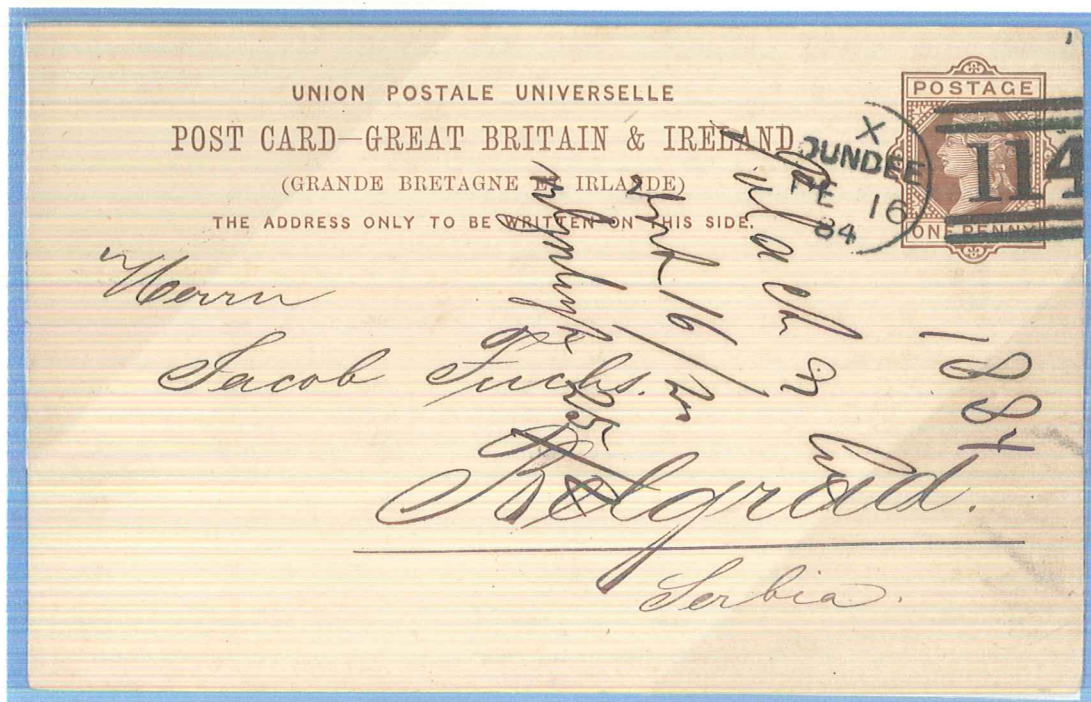 UNION POSTALE UNIVERSELLE
POST CARD—GREAT BRITAIN & IRELAND
(GRANDE BRETAGNE ET IRLANDE)
THE ADDRESS ONLY TO BE WRITTEN ON THIS SIDE.
POSTAGE
ONE PENNY
X
DUNDEE
FE 16
84
114
Herrn
Jacob Fuchs.
Belgrad.
Serbia.
1884
16/2
25